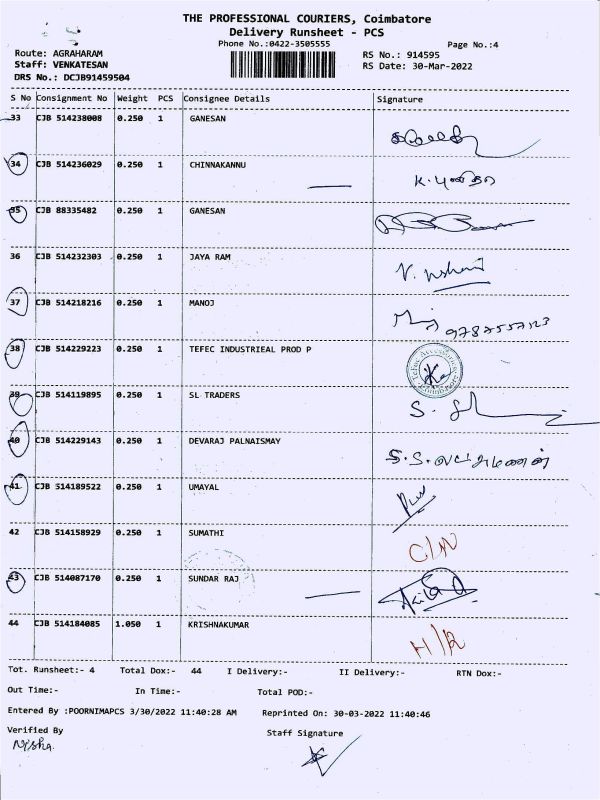 THE PROFESSIONAL COURIERS, Coimbatore
Delivery Runsheet - PCS
Phone No.:0422-3505555
Page No.:4
Route: AGRAHARAM
RS No.: 914595
Staff: VENKATESAN
RS Date: 30-Mar-2022
DRS No.: DCJB91459504
S No Consignment No Weight PCS Consignee Details Signature
33 CJB 514238008 0.250 1 GANESAN
34 CJB 514236029 0.250 1 CHINNAKANNU
35 CJB 88335482 0.250 1 GANESAN
36 CJB 514232303 0.250 1 JAYA RAM
37 CJB 514218216 0.250 1 MANOJ
38 CJB 514229223 0.250 1 TEFEC INDUSTRIEAL PROD P
39 CJB 514119895 0.250 1 SL TRADERS
40 CJB 514229143 0.250 1 DEVARAJ PALNAISMAY
41 CJB 514189522 0.250 1 UMAYAL
42 CJB 514158929 0.250 1 SUMATHI C/N
43 CJB 514087170 0.250 1 SUNDAR RAJ
44 CJB 514184085 1.050 1 KRISHNAKUMAR
Tot. Runsheet:- 4 Total Dox:- 44 I Delivery:- II Delivery:- RTN Dox:-
Out Time:- In Time:- Total POD:-
Entered By :POORNIMAPCS 3/30/2022 11:40:28 AM Reprinted On: 30-03-2022 11:40:46
Verified By Staff Signature
Nisha